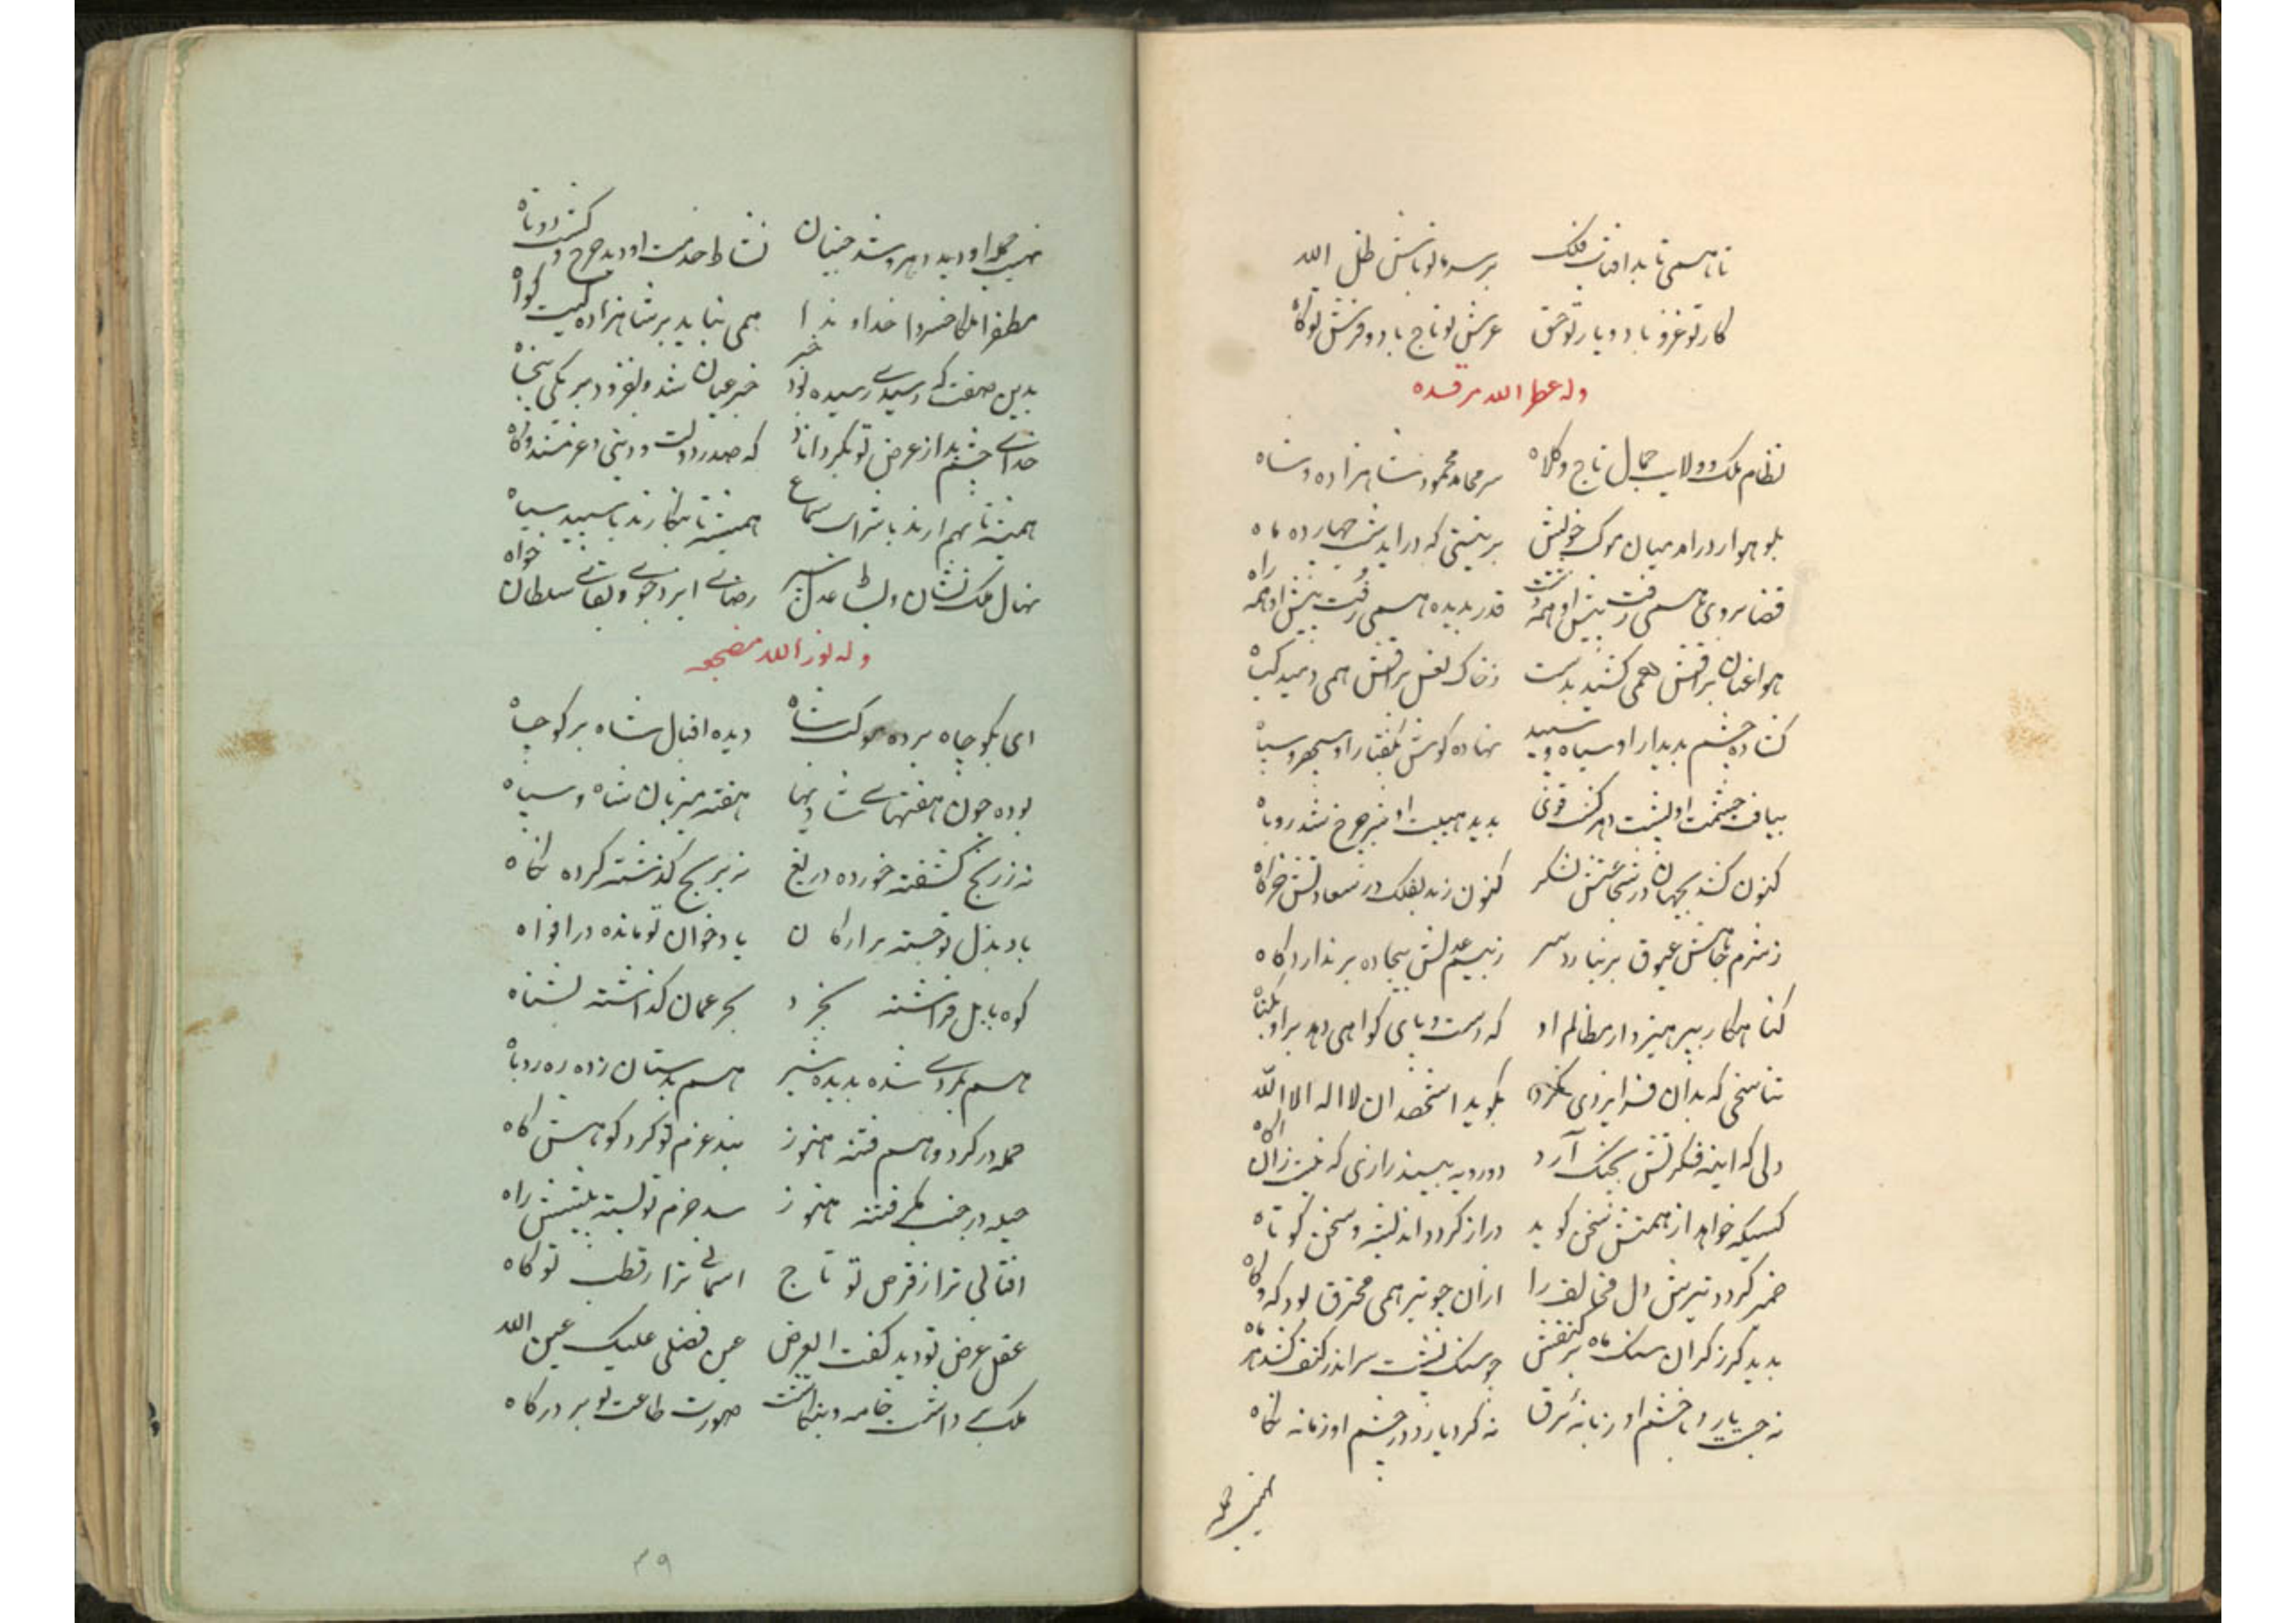 تا همی تابد افتاب فلک بر سر ما تو باش ظل الله
کار تو غزو باد و یار تو حق عرش تو تاج باد و فرش تو کاه
وله عطر الله مرقده
نظام ملک و ولایت جمال تاج و کلاه سر محامد محمود شاهزاده و شاه
بلوهوار درامد میان موکب خویش بر هیئتی که درآید شب چهارده ماه
قضا بروی همی رفت پیش او همه دشت قدر بدیده همی رفت پیش او همه راه
هوا عنان براقش همی کشید بدست ز خاک نعل براقش همی دمید کیاه
کشاده چشم بدیدار او سیاه و سپید نهاده کوش بکفتار او سپهر و سپاه
بیافت حشمت او پشت دهر کشت قوی بدید هیبت او شیر چرخ شد روباه
کنون کشد بجهان در شجاعتش لشکر کنون زند بفلک در سعادتش خرکاه
ز شرم جاهش عیوق بر نیارد سر ز بیم عدلش بیجاده بر ندارد کاه
کناهکار بپرهیزد از مظالم او که دست و پای کواهی دهد بر او بکناه
تناسخی که بدان فر ایزدی نکرد بکوید اشهد ان لا اله الا الله
دلی که اینه فکرتش بچنک آرد دو رویه بیند رازی که نیست زان آکاه
کسیکه خواهد از همتش سخن کوید دراز کردد اندیشه و سخن کوتاه
ضمیر کردد تیرش دل مخالف را از آن چو تیر همی محترق بود که و کاه
بدید کرز کران سنک ماه بر کتفش چو سنک پشت سر اندر کتف کشد هر ماه
نه جست یارد با خشم او زبانه برق نه کرد یارد در چشم او زمانه نکاه
نهیب حمله
نهیب حمله او دید دهر و شد جنبان نشاط خدمت او دید چرخ و کشت دوتاه
مظفرا ملکا خسروا خداوندا همی نباید بر شاهزادکیت کواه
بدین صفت که رسیدی رسیده بود خبر خبر عیان شد و بفزود بر یکی پنجاه
خدای چشم بد از عرض تو بکرداناد که صدر دولت و دینی و عز مسند و کاه
همیشه تا بهم ارند با شراب سماع همیشه تا بنکارند با سپید سیاه
نهال ملک نشان و بساط عدل سپر رضای ایزد جوی و بقای سلطان خواه
وله نور الله مضجعه
ای بکوچاه برده موکب شاه دیده اقبال شاه بر کوچاه
بوده چون هفتهای شادیها هفته میزبان شاه و سپاه
نه ز رنج کشفته خورده دریغ نه بر بج کذشته کرده نکاه
باد بذل تو جسته بر ارکان یاد خوان تو مانده در افواه
کوه بابل فراشته بخرد بحر عمان کذاشته بشناه
هم بمردی شده بدیده شیر هم بدستان زده ره روباه
حمله در کرد وهم فتنه هنوز بند عزم تو کرد کوهش کاه
حیله در جنب کلی فتنه هنوز سد حزم تو بسته پیشش راه
افتابی ترا ز قرص تو تاج اسمانی ترا ز قطب تو کاه
عقل عرض تو دید کفت العرض عین فضلی علیک عین الله
ملک بی داشت خامه و بنکاشت صورت طاعت تو بر درکاه
۴۹